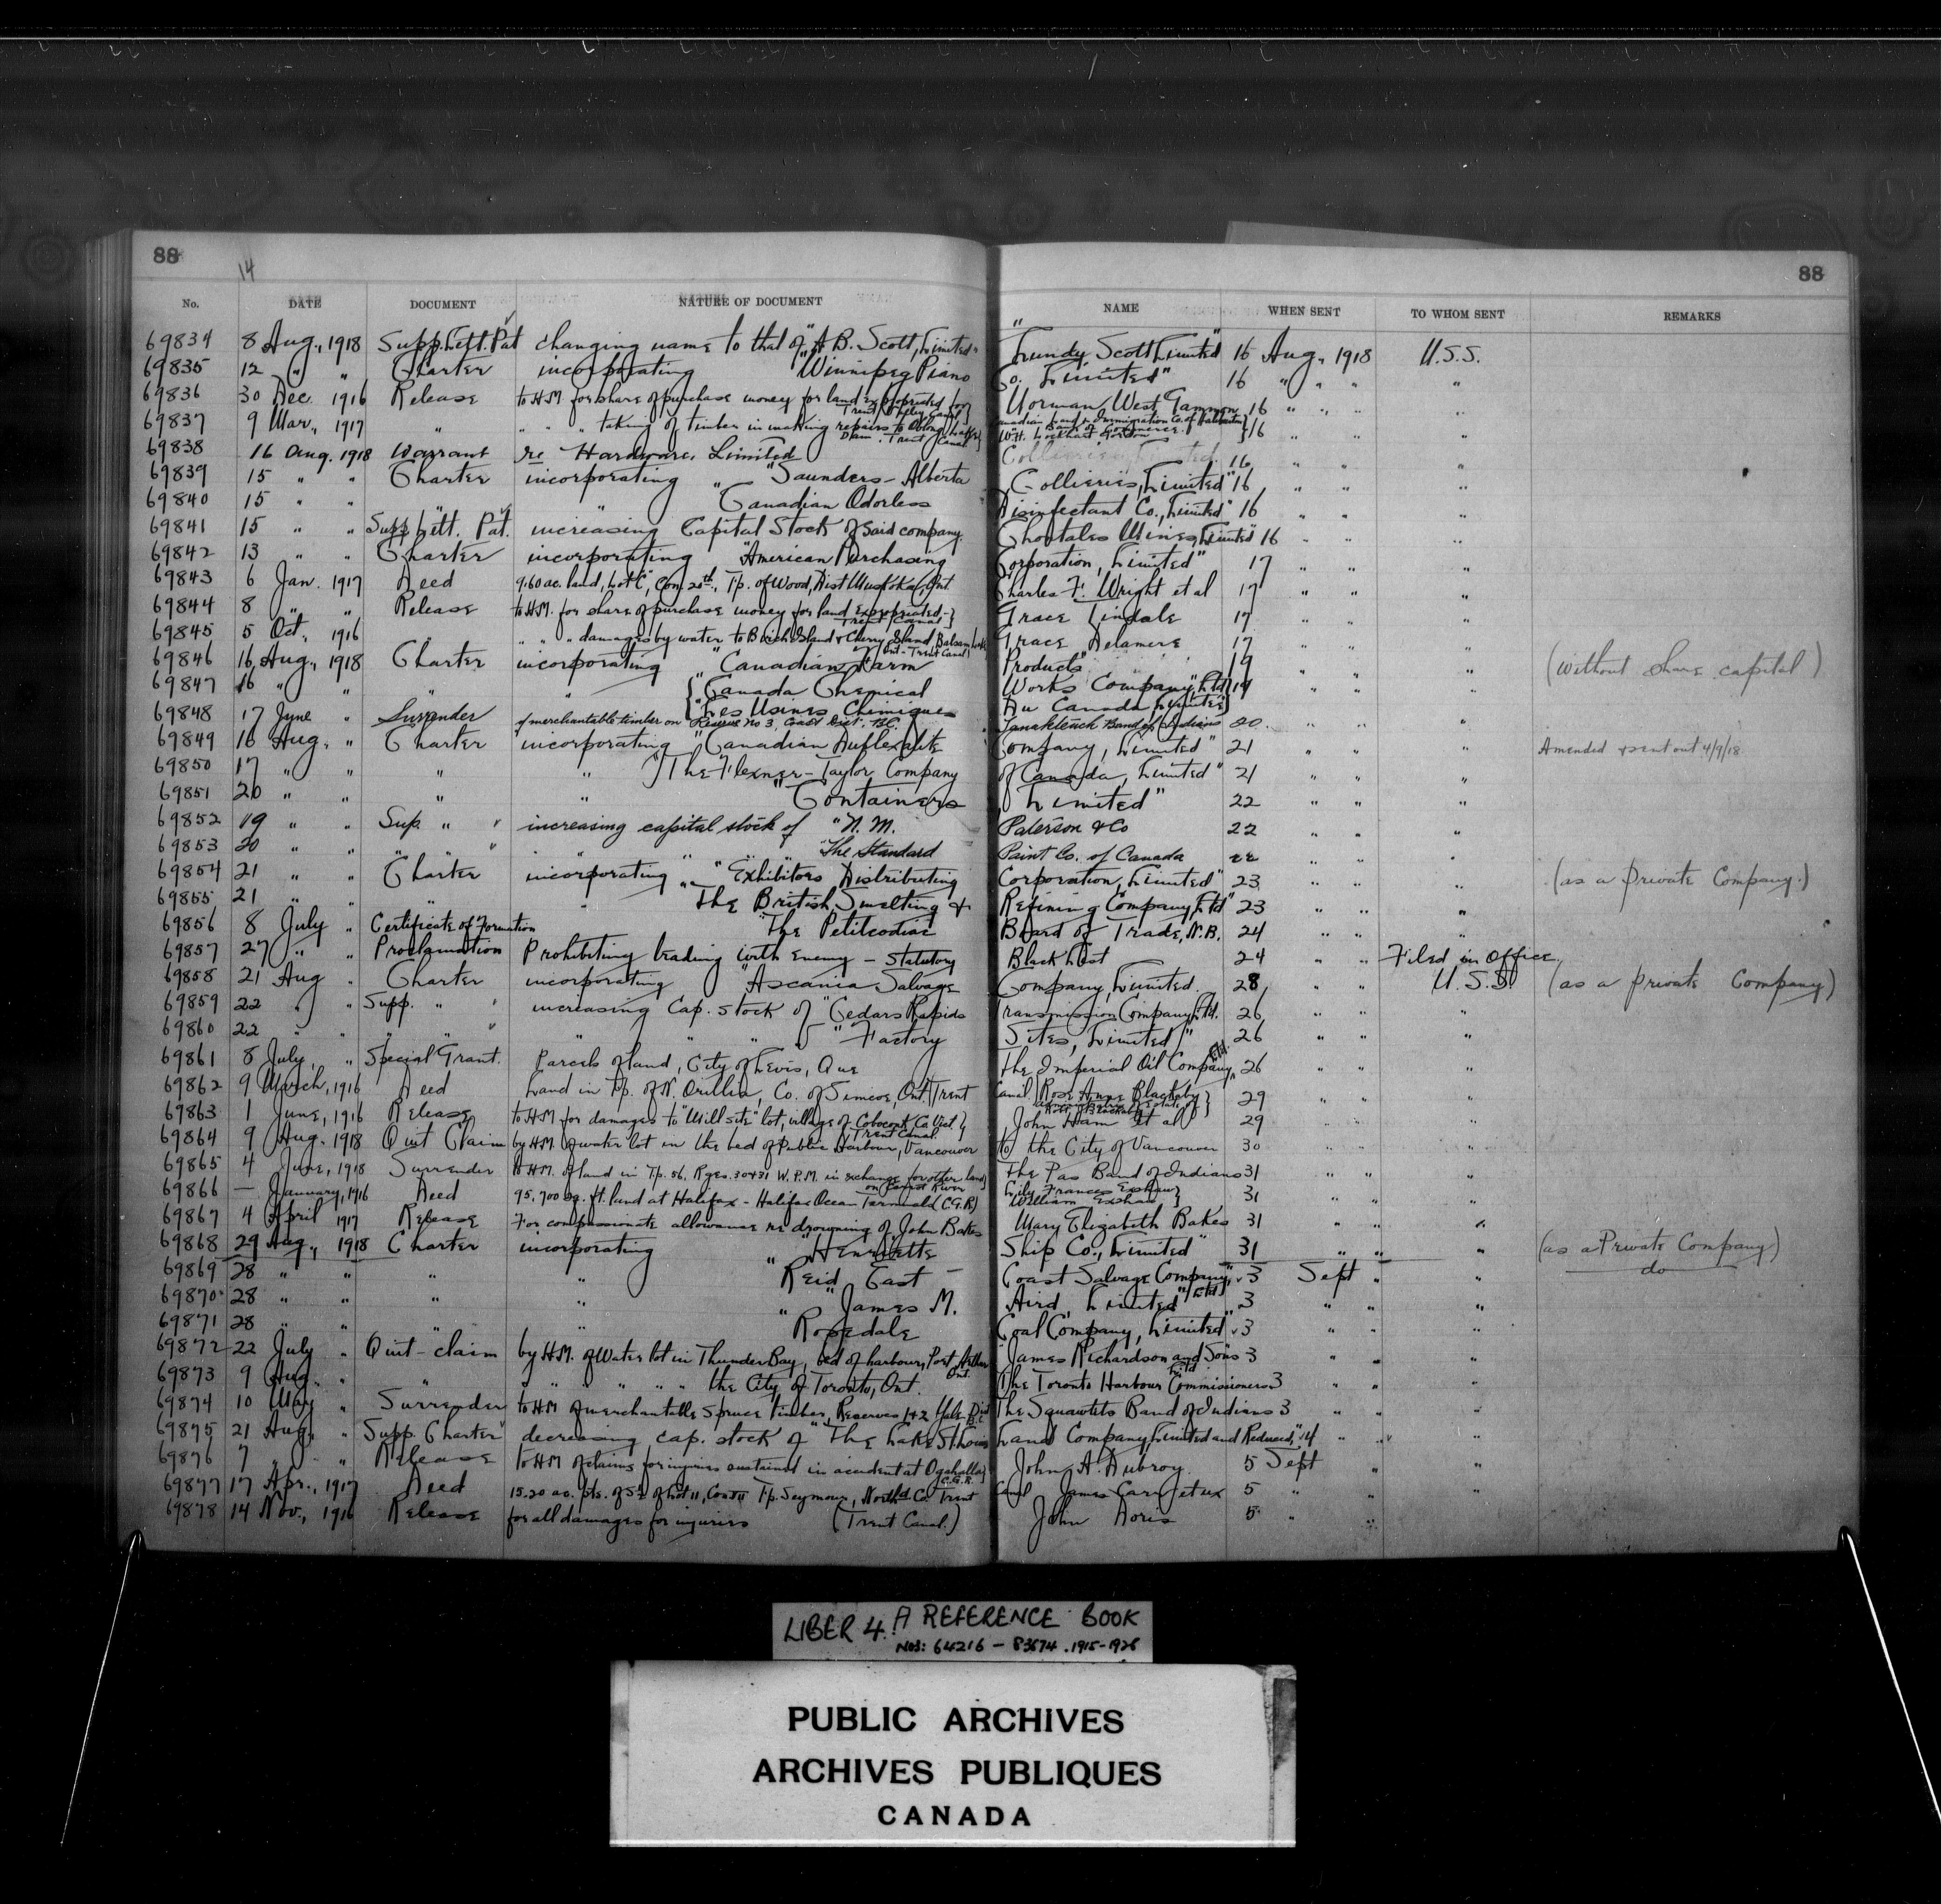 88
14
88
No. DATE DOCUMENT NATURE OF DOCUMENT NAME WHEN SENT TO WHOM SENT REMARKS
69834 8 Aug., 1918 Supp. Lett. Pat changing name to that of "A. B. Scott, Limited" "Lundy, Scott Limited" 16 Aug., 1918 U.S.S.
69835 12 " " Charter incorporating "Winnipeg Piano Co. Limited" 16 " " "
69836 30 Dec. 1916 Release to H.M. for share of purchase money for land expropriated for Trent Valley Canal} Norman West Gammon 16 " " "
69837 9 Mar., 1917 " " " " taking of timber in making repairs to Oblong Lake Dam. Trent Canal} Canadian Land & Immigration Co. of Haliburton Bank of Commerce. W.H. Lockhart Gordon }16 " " "
69838 16 Aug. 1918 Warrant re Hardware, Limited 16 " " "
69839 15 " " Charter incorporating "Saunders-Alberta Collieries, Limited" 16 " " "
69840 15 " " " " "Canadian Odorless Disinfectant Co., Limited" 16 " " "
69841 15 " " Supp. Lett. Pat. increasing Capital Stock of said company Chortales Mines, Limited 16 " " "
69842 13 " " Charter incorporating "American Purchasing Corporation, Limited" 17 " " "
69843 6 Jan. 1917 Deed 9.60 ac. land, Lot C, Con. 20th., Tp. of Wood, Dist Muskoka, Ont. Charles F. Wright et al 17 " " "
69844 8 " " Release to H.M. for share of purchase money for land Expropriated- Trent Canal} Grace Lindale 17 " " "
69845 5 Oct., 1916 " " " " damages by water to Birch Island & Cherry Island Balsam Lake Ont - Trent Canal} Grace Delamere 17 " " "
69846 16 Aug., 1918 Charter incorporating "Canadian Farm Products" 19 " " " (without share capital)
69847 16 " " " " {"Canada Chemical Works Company, Ltd} 19 " " "
{"Les Usines Chimiques du Canada Limitée}
69848 17 June " Surrender of merchantable timber on Reserve No 3, Coast Dist. B.C. Tanakteuch Band of Indians 20 " " "
69849 16 Aug. " Charter incorporating "Canadian Duflexalite Company, Limited" 21 " " " Amended & sent out 4/9/18
69850 17 " " " " "The Flexner-Taylor Company of Canada, Limited" 21 " " "
69851 20 " " " " "Containers Limited" 22 " " "
69852 19 " " Sup. " " increasing capital stock of "N. M. Paterson & Co 22 " " "
69853 20 " " " " " " " " "The Standard Paint Co. of Canada 22 " " "
69854 21 " " Charter incorporating "Exhibitors Distributing Corporation, Limited" 23 " " " (as a Private Company.)
69855 21 " " " " "The British Smelting & Refining Company, Ltd" 23 " " "
69856 8 July " Certificate of Formation "The Petitcodiac Board of Trade, N.B. 24 " " "
69857 27 " " Proclamation Prohibiting trading with Enemy - Statutory Black List 24 " " Filed in Office
69858 21 Aug " Charter incorporating "Ascania Salvage Company, Limited. 28 " " U.S.S. (as a private Company)
69859 22 " " Supp. " " increasing Cap. stock of "Cedars Rapids Transmission Company, Ltd. 26 " " "
69860 22 " " " " " " " " "Factory Sites, Limited" 26 " " "
69861 8 July " Special Grant. Parcels of land, City of Levis, Que The Imperial Oil Company, Ltd. 26 " " "
69862 9 March, 1916 Deed Land in Tp. of N. Orillia, Co. of Simcoe, Ont. Trent Canal. {Rose Anne Blackaby Administratrix of Estate of Blackaby } 29 " " "
69863 1 June, 1916 Release to H.M. for damages to "Mill site" lot, village of Coboconk Co Vict. Trent Canal.} John Ham et al 29 " " "
69864 9 Aug. 1918 Quit Claim by H.M. of water lot in the bed of Public Harbour, Vancouver to the City of Vancouver 30 " " "
69865 4 June, 1918 Surrender to H.M. of land in Tp. 56, Rges. 30 & 31 W.P.M. in exchange for other land on Carrot River} The Pas Band of Indians 31 " " "
69866 — January, 1916 Deed 95,700 sq. ft. land at Halifax - Halifax Ocean Terminals (C.G.R.) Lily Frances Exshaw William Exshaw } 31 " " "
69867 4 April 1917 Release For compassionate allowance re drowning of John Bakes Mary Elizabeth Bakes 31 " " "
69868 29 Aug., 1918 Charter incorporating "Henriette Ship Co., Limited" 31 " " " (as a Private Company)
69869 28 " " " " "Reid East Coast Salvage Company, Ltd" 3 Sept " " do
69870 28 " " " " "James M. Aird, Limited" 3 " " "
69871 28 " " " " "Rosedale Coal Company, Limited" 3 " " "
69872 22 July " Quit-claim by H.M. of Water lot in Thunder Bay, bed of harbour, Port Arthur Ont. James Richardson and Sons Ltd 3 " " "
69873 9 Aug. " " " " " " " the City of Toronto, Ont. The Toronto Harbour Commissioners 3 " " "
69874 10 May " Surrender to H.M. of merchantable Spruce timber, Reserves 1 & 2 Yale Dist B.C The Squawtits Band of Indians 3 " " "
69875 21 Aug. " Supp. Charter decreasing cap. stock of "The Lake St. Louis Land Company Limited and Reduced," 4 " " "
69876 7 " " Release to H.M. of claims for injuries sustained in accident at Ogahalla C.G.R.} John A. Aubroy 5 Sept " "
69877 17 Apr., 1917 Deed 15.20 ac. pts. of S½ of Lot 11, Con II Tp. Seymour, North'd Co. Trent Canal James Car 5 " " "
69878 14 Nov., 1916 Release for all damages for injuries (Trent Canal.) John Doris 5 " "
LIBER 4. A REFERENCE BOOK
NOS: 64216 - 83674. 1915-1928
PUBLIC ARCHIVES
ARCHIVES PUBLIQUES
CANADA